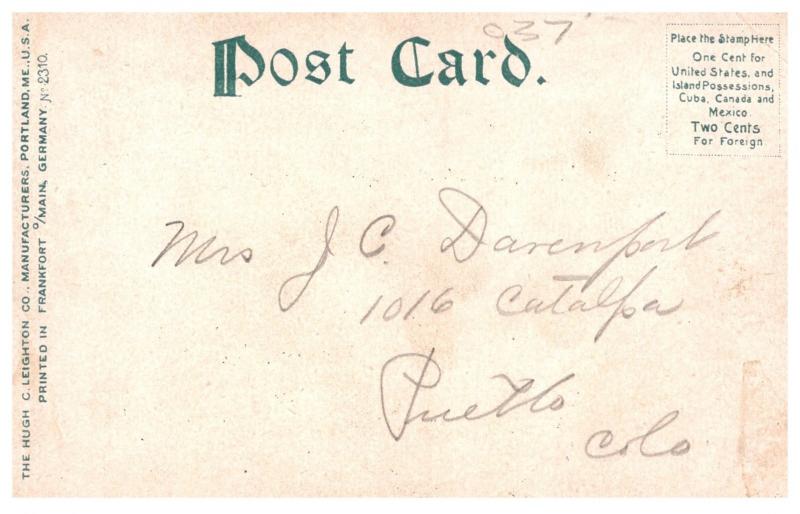 037
Post Card.
Place the Stamp Here
One Cent for
United States, and
Island Possessions,
Cuba, Canada and
Mexico
Two Cents
For Foreign
THE HUGH C. LEIGHTON CO., MANUFACTURERS, PORTLAND, ME., U.S.A.
PRINTED IN FRANKFORT o/MAIN, GERMANY. No 2310.
Mrs J C. Davenport
1016 Catalpa
Pueblo
Colo